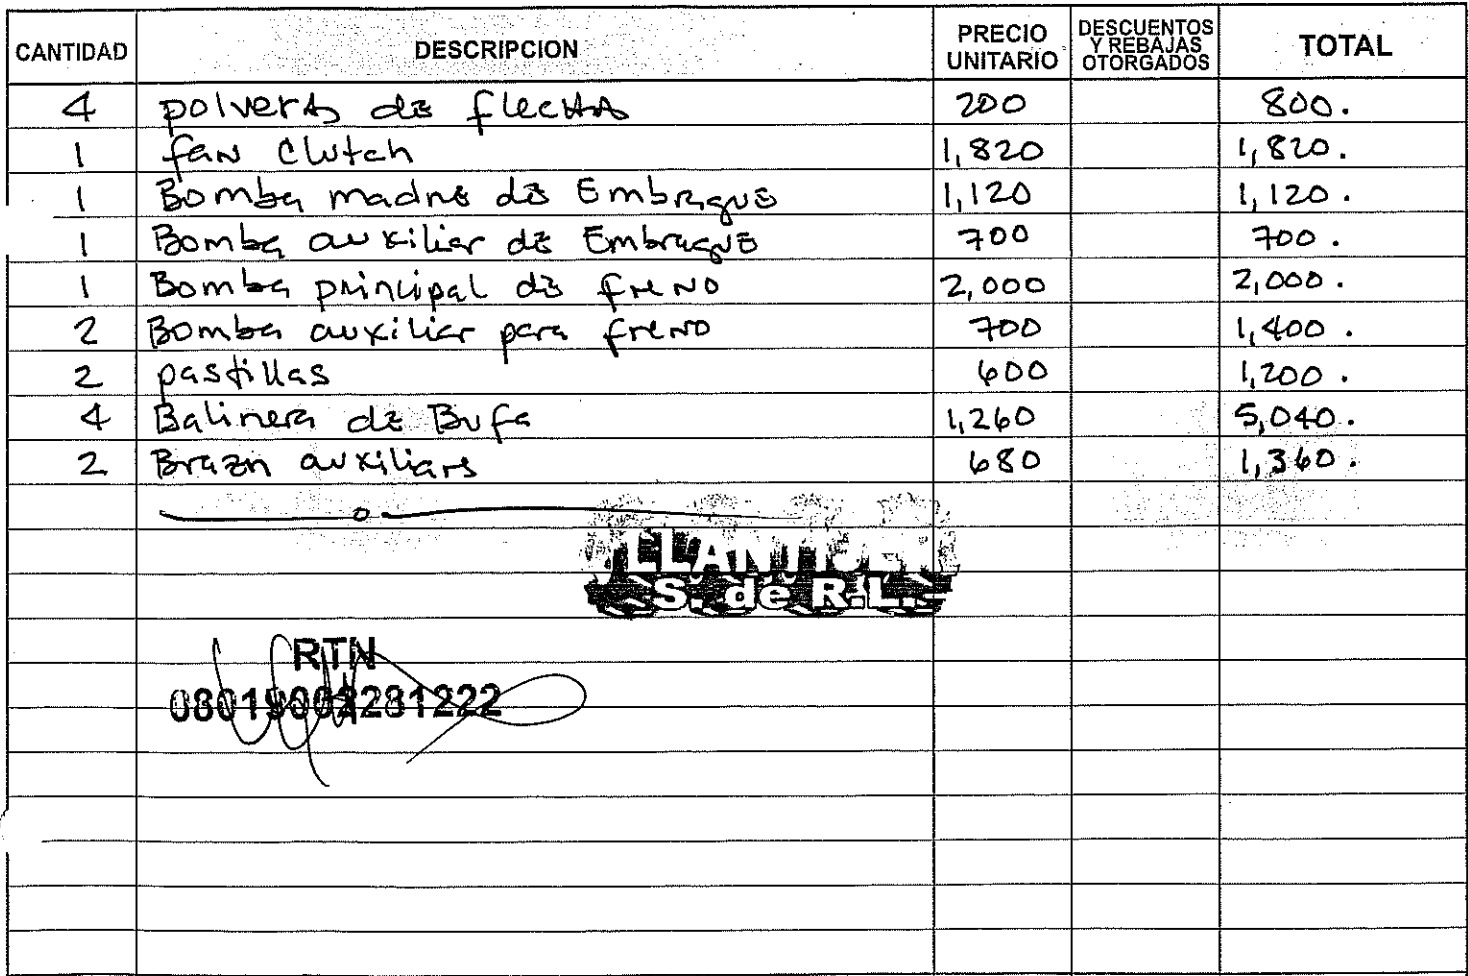 CANTIDAD DESCRIPCION PRECIO UNITARIO DESCUENTOS Y REBAJAS OTORGADOS TOTAL
4 polvera de flecha 200 800.
1 fan Clutch 1,820 1,820.
1 Bomba madre de Embrague 1,120 1,120.
1 Bomba auxiliar de Embrague 700 700.
1 Bomba principal de freno 2,000 2,000.
2 Bomba auxiliar para freno 700 1,400.
2 pastillas 600 1,200.
4 Balinera de Bufa 1,260 5,040.
2 Brazo auxiliars 680 1,360.
S. de R.L.
RTN
08019002281222